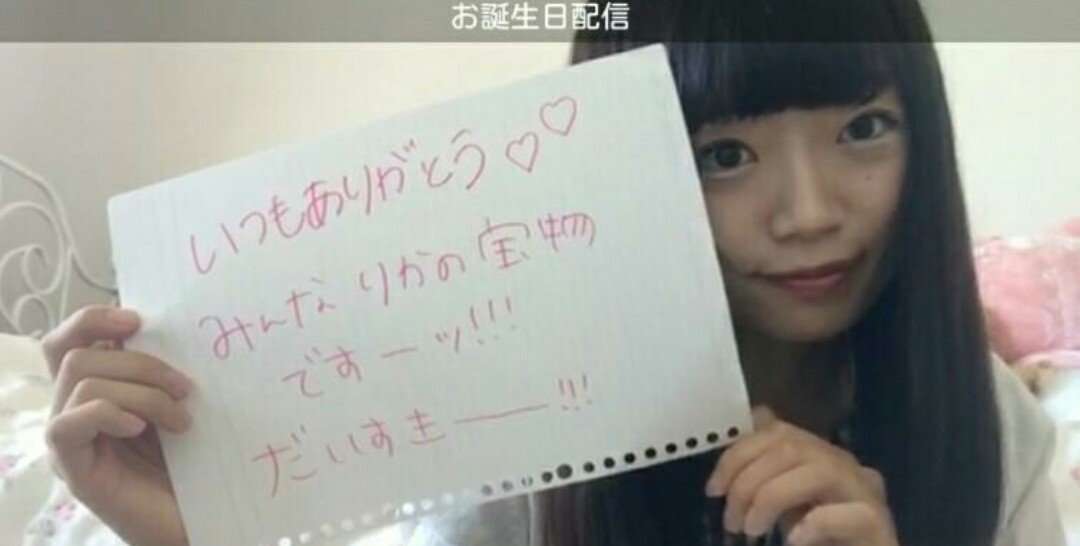 お誕生日配信
いつもありがとう♡♡
みんなりかの宝物
ですーッ!!!
だいすきー!!!